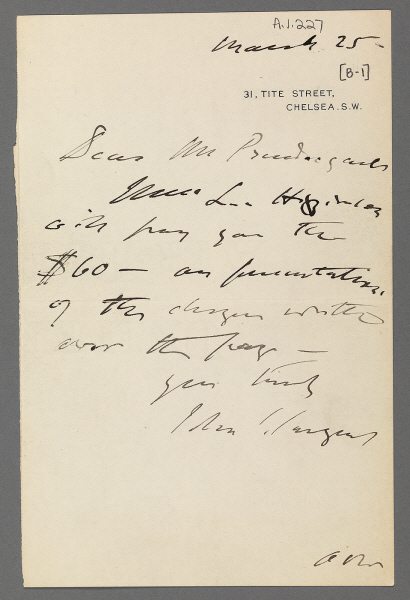 A.1.227
March 25
[B-1]
31, TITE STREET,
CHELSEA. S.W.
Dear Mr Prendergast
Lee Higginson
will pay you the
$60 — on presentation
of the cheque written
over the page —
yours truly
John S Sargent
over